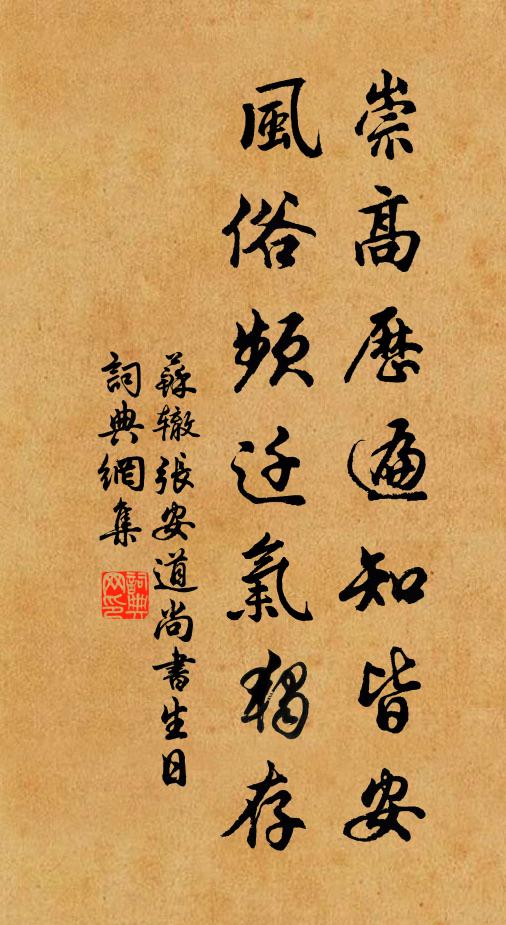 崇高歷遍知皆妄
風俗頻迁氣獨存
蘇辙張安道尚書生日
詞典網集
詞典网印